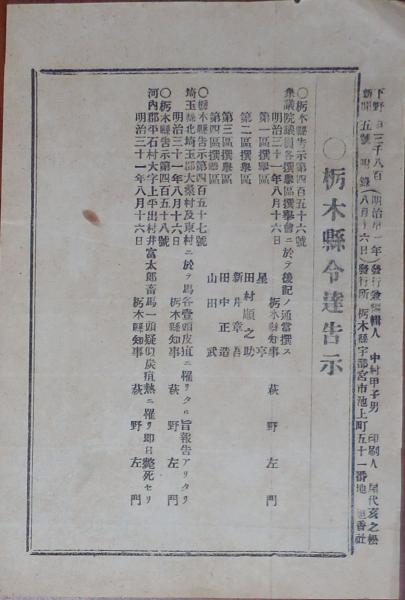 下野 三千八百 (明治 一年) 發行兼編輯人 中村甲子男 印刷人 屋代亥之松
新聞 五號 附錄 (八月十六日) 發行所 栃木縣宇都宮市池上町五十一番地 香社
〇栃木縣令達告示
〇栃木縣告示第四百五十六號
衆議院議員各撰擧區撰擧會ニ於テ後記ノ通當撰ス
明治三十一年八月十六日 栃木縣知事 萩野左門
第一區撰擧區 星亨
第二區撰擧區 田村順之助
新井章吾
第三區撰擧區 田中正造
第四區撰擧區 山田武
〇栃木縣告示第四百五十七號
埼玉縣北埼玉郡大桑村及東村ニ於テ馬各壹頭皮疽ニ罹リタル旨報告アリタリ
明治三十一年八月十六日 栃木縣知事 萩野左門
〇栃木縣告示第四百五十八號
河內郡平石村大字上平出村井富太郎畜馬一頭疑似炭疽熱ニ罹リ卽日斃死セリ
明治三十一年八月十六日 栃木縣知事 萩野左門